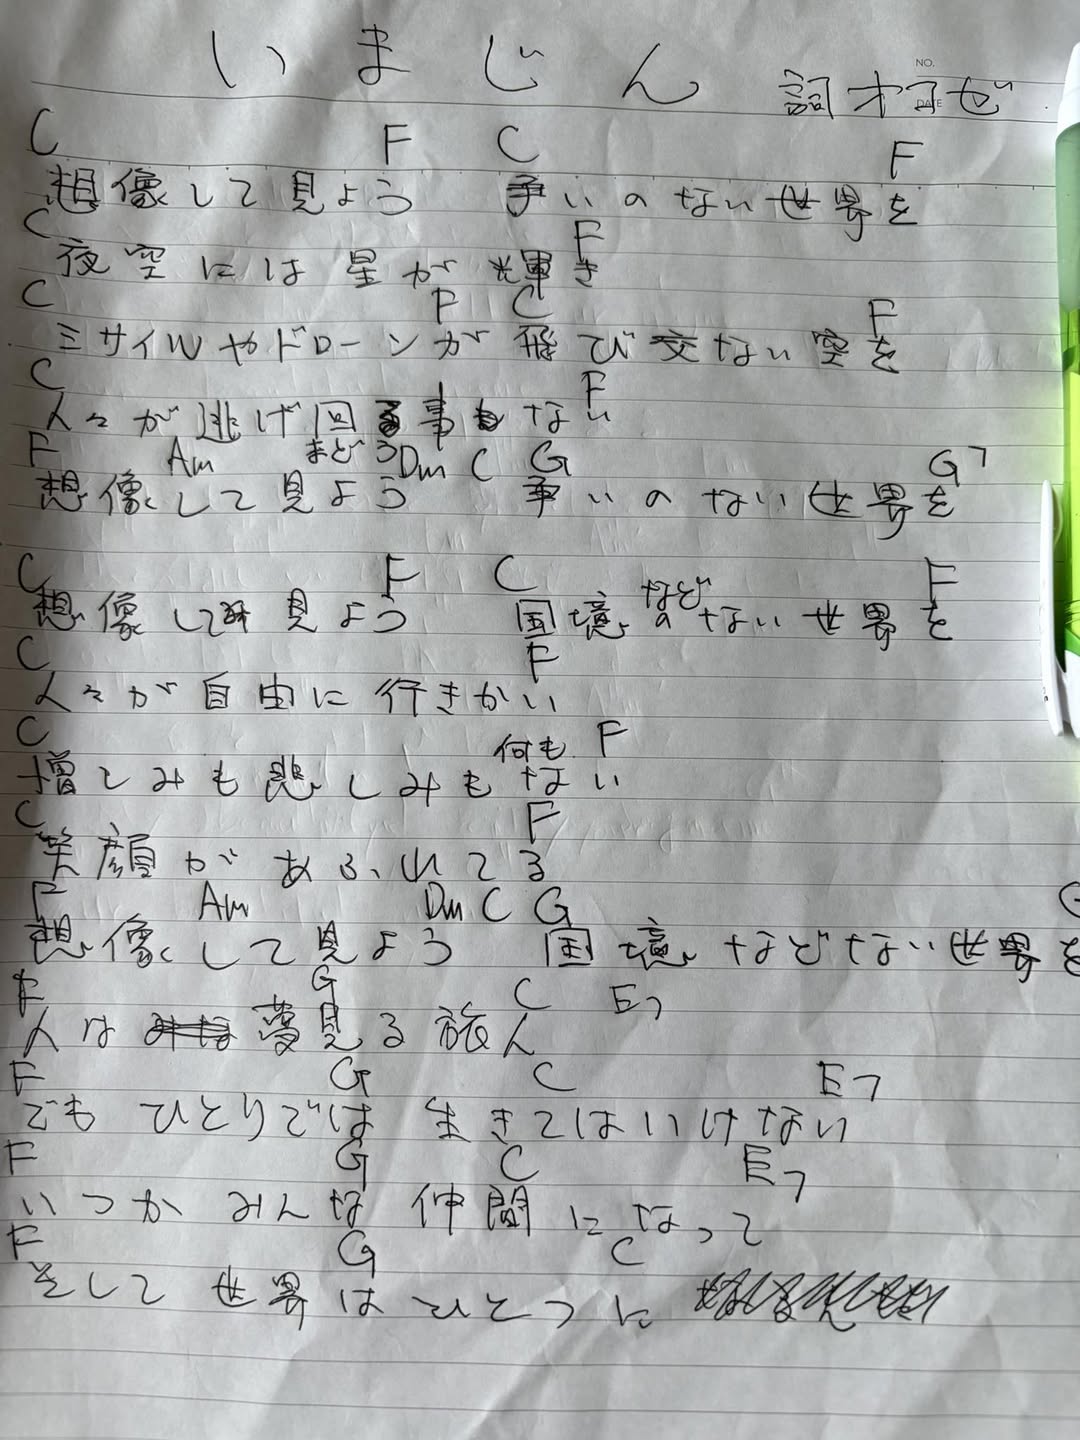 いまじん
NO.
DATE
詞オマセ
C F C F
想像して見よう 争いのない世界を
C F
夜空には星が輝き
C F C F
ミサイルやドローンが飛び交ない空を
C F
人々が逃げ回る事もない
まどう
F Am Dm C G G7
想像して見よう 争いのない世界を
C F C F
など
想像して見よう 国境のない世界を
C F
人々が自由に行きかい
C 何も F
憎しみも悲しみもない
C F
笑顔があふれてる
F Am Dm C G G
想像して見よう 国境などない世界を
F G C E7
人は夢見る旅人
F G C E7
でも ひとりでは 生きてはいけない
F G C E7
いつか みんな 仲間になって
F G C
そして 世界は ひとつに